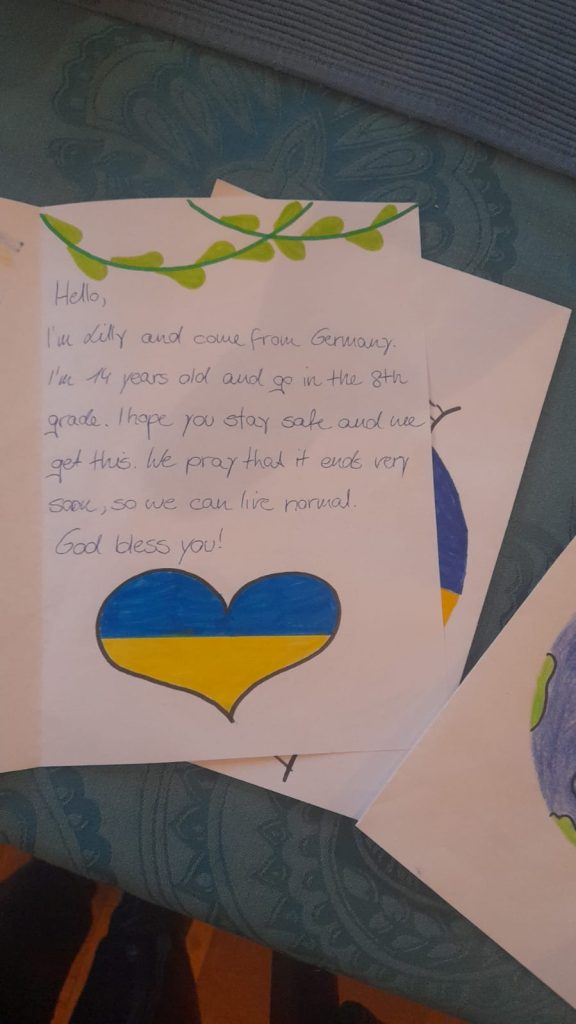 Hello,
I'm Lilly and come from Germany.
I'm 14 years old and go in the 8th
grade. I hope you stay safe and we
get this. We pray that it ends very
soon, so we can live normal.
God bless you!